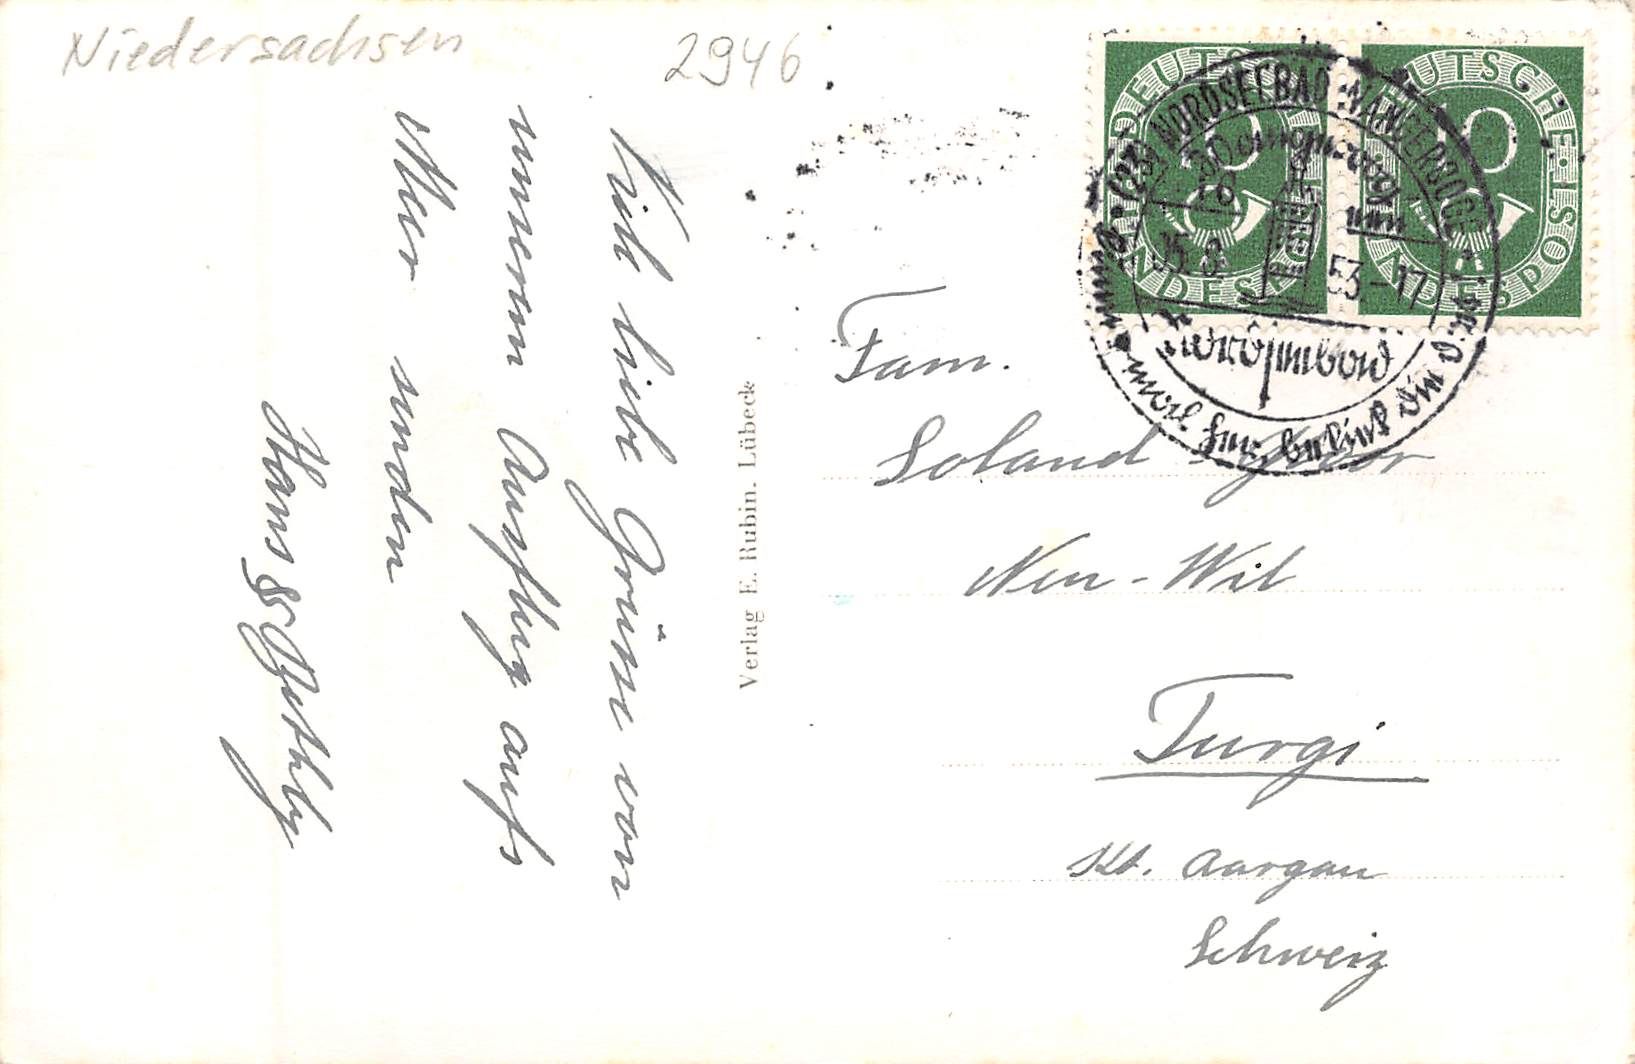 Niedersachsen
2946
Viele liebe Grüsse von
unserem Ausflug aufs
Meer senden
Hans & Bethly
Verlag E. Rubin. Lübeck
DEUTSCHE
BUNDESPOST
10
DEUTSCHE
BUNDESPOST
10
(23) NORDSEEBAD WANGEROOGE
15.8.53-17
Nordseebad
Fam.
Soland
Neu-Wil
Turgi
Kt. Aargau
Schweiz